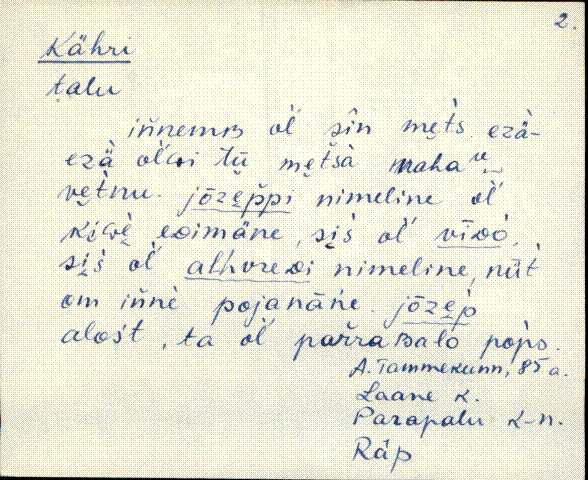 2.
Kähri
talu
ińnemʙ ol̀' sîn mets, ezä-
ezä ol̀'ᴅi tū metsà maha
vetnu. jōzeppi nimeline ol̀'
eᴅimäne, siś ol̀' vīᴅò,
siś ol̀' alhvreᴅi nimeline, nǖt
om ińnè pojanäne. jōzep
alośt, ta ol̀' pařraʙalò pops.
A. Tammekunn, 85 a.
Laane k.
Parapalu k-n.
Räp